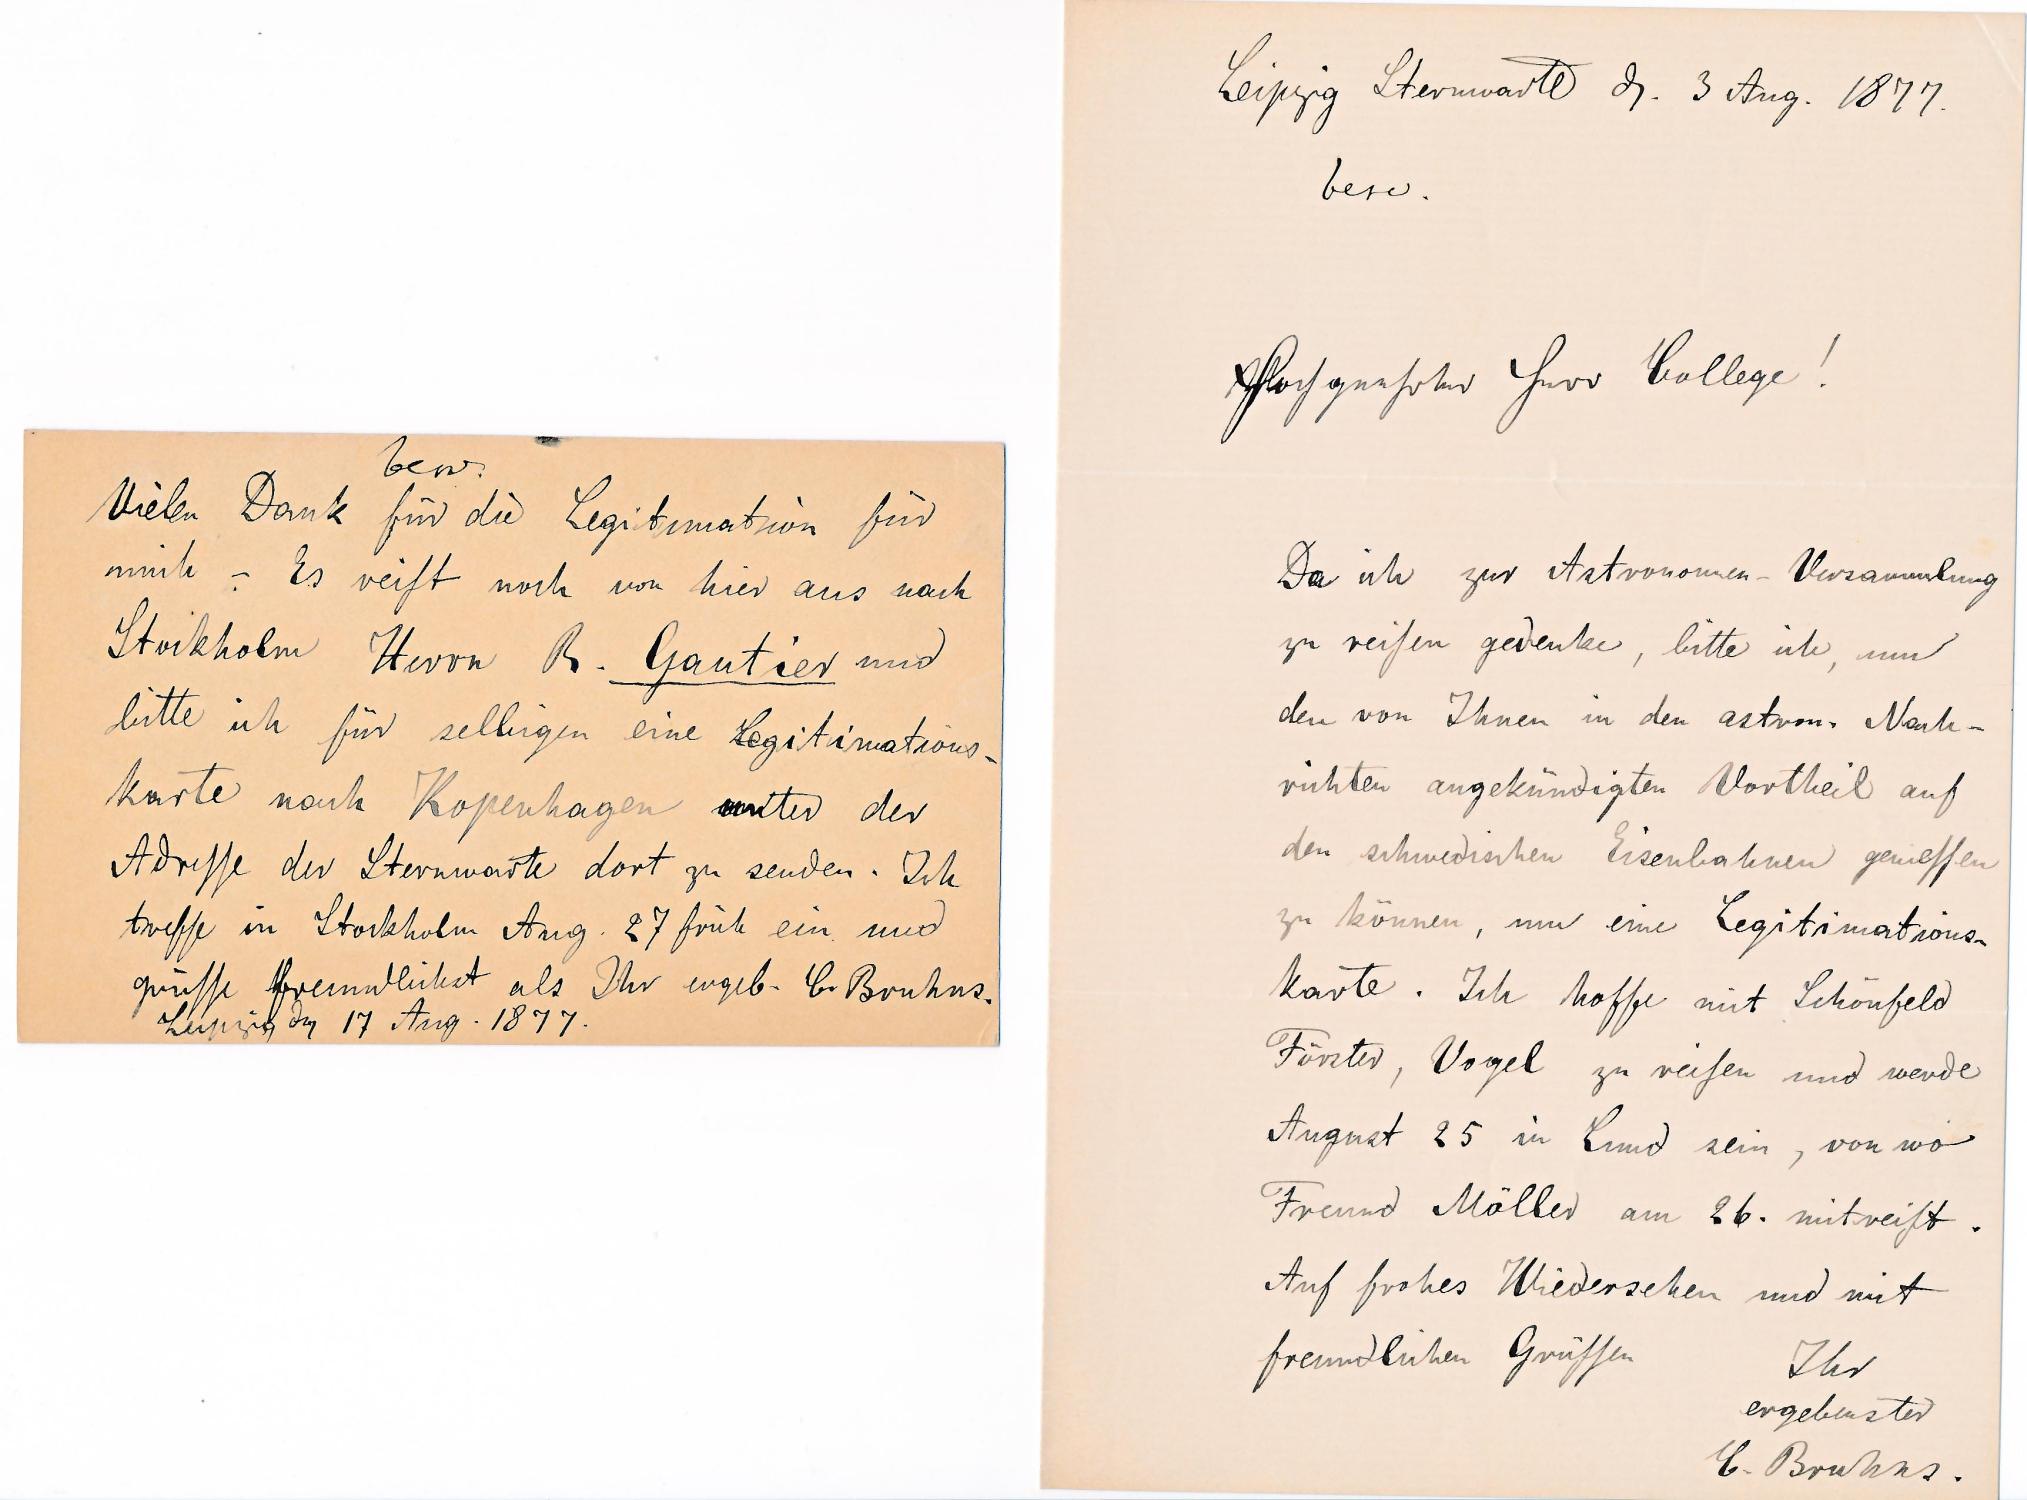 besv.
Vielen Dank für die Legitimation für
mich – Es reist noch von hier aus nach
Stockholm Herrn R. Gautier und
bitte ich für selbigen eine Legitimations-
karte nach Kopenhagen unter der
Adresse der Sternwarte dort zu senden. Ich
treffe in Stockholm Aug. 27 früh ein und
grüsse freundlichst als Ihr ergeb. C. Bruhns.
Leipzig den 17 Aug. 1877.
Leipzig Sternwarte d. 3 Aug. 1877.
besv.
Hochgeehrter Herr College!
Da ich zur Astronomen-Versammlung
zu reisen gedenke, bitte ich, um
den von Ihnen in den astron. Nach-
richten angekündigten Vortheil auf
den schwedischen Eisenbahnen geniessen
zu können, um eine Legitimations-
karte. Ich hoffe mit Schönfeld
Förster, Vogel zu reisen und werde
August 25 in Lund sein, von wo
Freund Möller am 26. mitreist.
Auf frohes Wiedersehen und mit
freundlichen Grüssen Ihr
ergebenster
C. Bruhns.